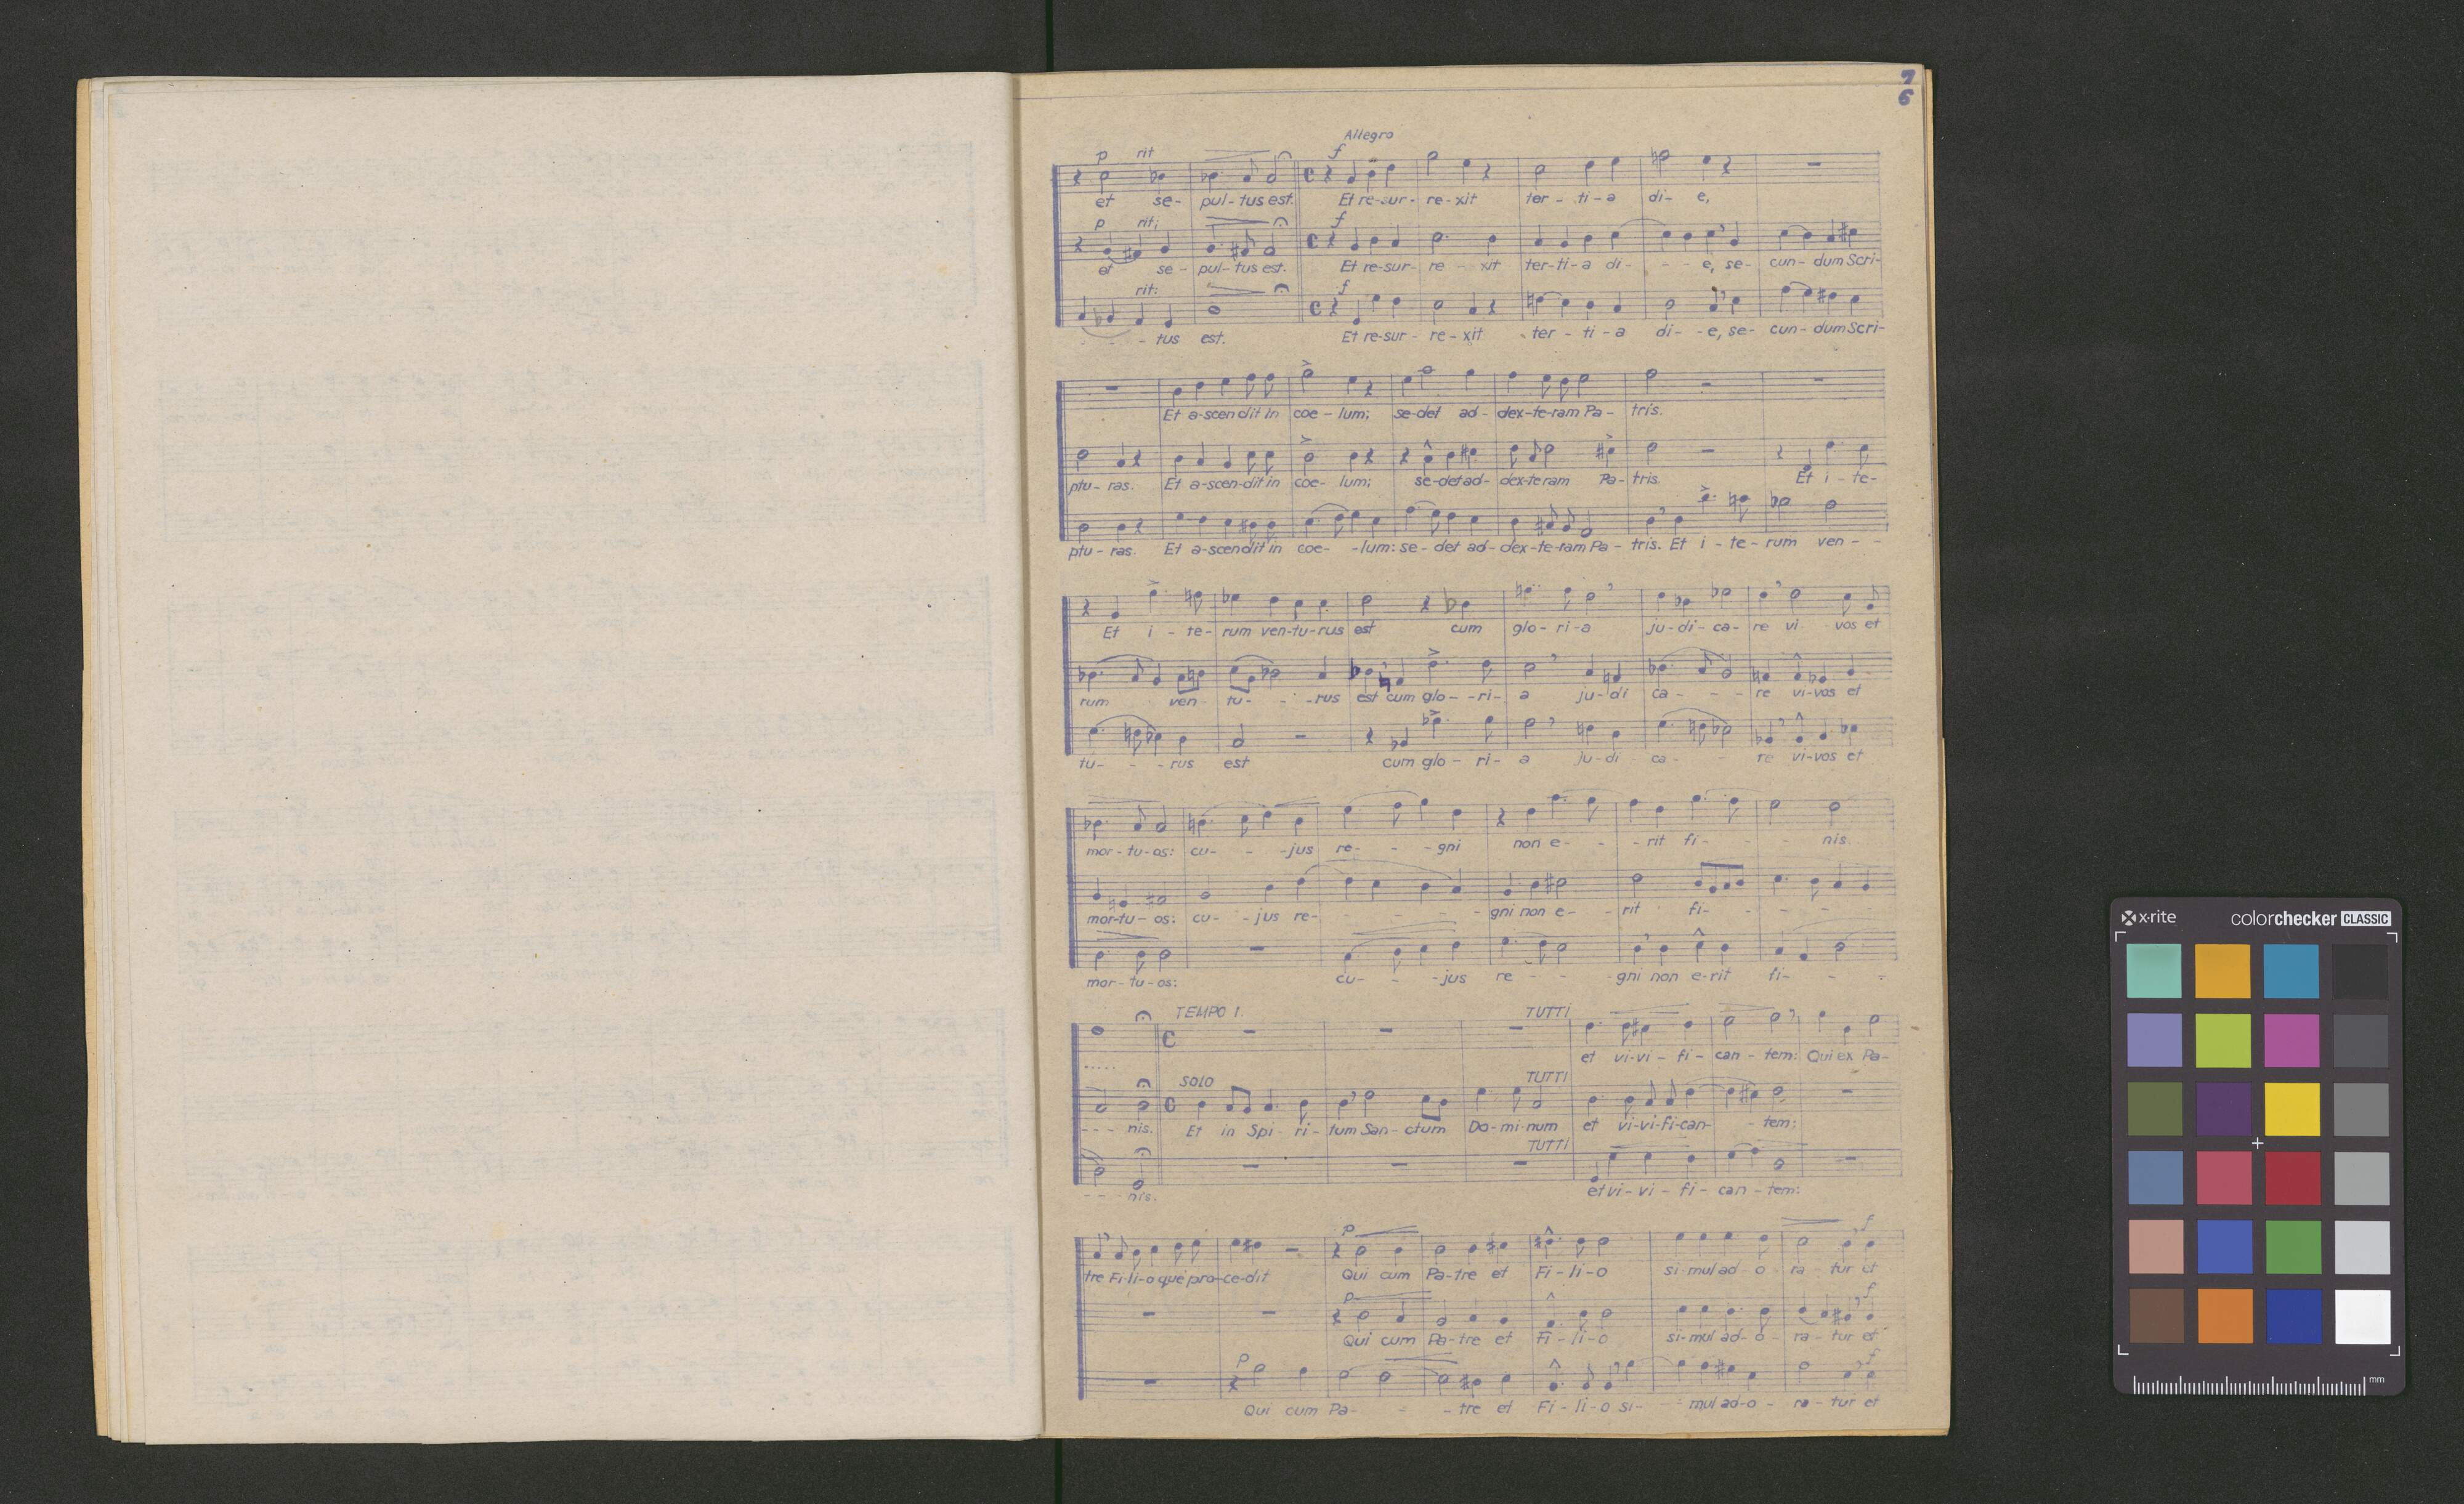 7
6
Allegro
p rit f
et se- pul-tus est. Et re-sur- re-xit ter-ti-a di- e,
p rit; f
et se- pul-tus est. Et re-sur- re-xit ter-ti-a di- - - e, se- cun-dum Scri-
rit: f
- - - tus est. Et re-sur- re-xit ter-ti-a di- -e, se- cun-dum Scri-
Et a-scendit in coe-lum; se-det ad- dex-te-ram Pa- tris.
ptu-ras. Et a-scen-dit in coe-lum; se-det ad- dex-te ram Pa-tris. Et i-te-
ptu-ras. Et a-scendit in coe- -lum: se-det ad-dex-te-ram Pa-tris. Et i-te-rum ven- -
Et i-te-rum ven-tu-rus est cum glo-ri-a ju-di-ca-re vi- vos et
rum ven tu- - -rus est cum glo- -ri- a ju-di ca- - - re vi-vos et
tu- - -rus est cum glo-ri-a ju-di ca- - re vi-vos et
mor-tu-os: cu- - -jus re- - -gni non e- - -rit fi- - - nis.
mor-tu-os: cu- -jus re- - - - - -gni non e- -rit fi- - - - -
mor-tu-os: cu- - -jus re - - -gni non e-rit fi- - -
TEMPO I. TUTTI
..... et vi-vi-fi-can-tem: Qui ex Pa-
SOLO TUTTI
- - - nis. Et in Spi-ri-tum San-ctum Do-mi-num et vi-vi-fi-can- -tem:
TUTTI
- - - nis. et vi-vi-fi-can-tem:
p f
tre Fi-li-o que pro-ce-dit Qui cum Pa-tre et Fi-li-o si-mul ad-o-ra-tur et
p f
Qui cum Pa-tre et Fi-li-o si-mul ad-o-ra-tur et
p f
Qui cum Pa- - -tre et Fi-li-o si- -mul ad-o-ra-tur et
x-rite colorchecker CLASSIC
mm